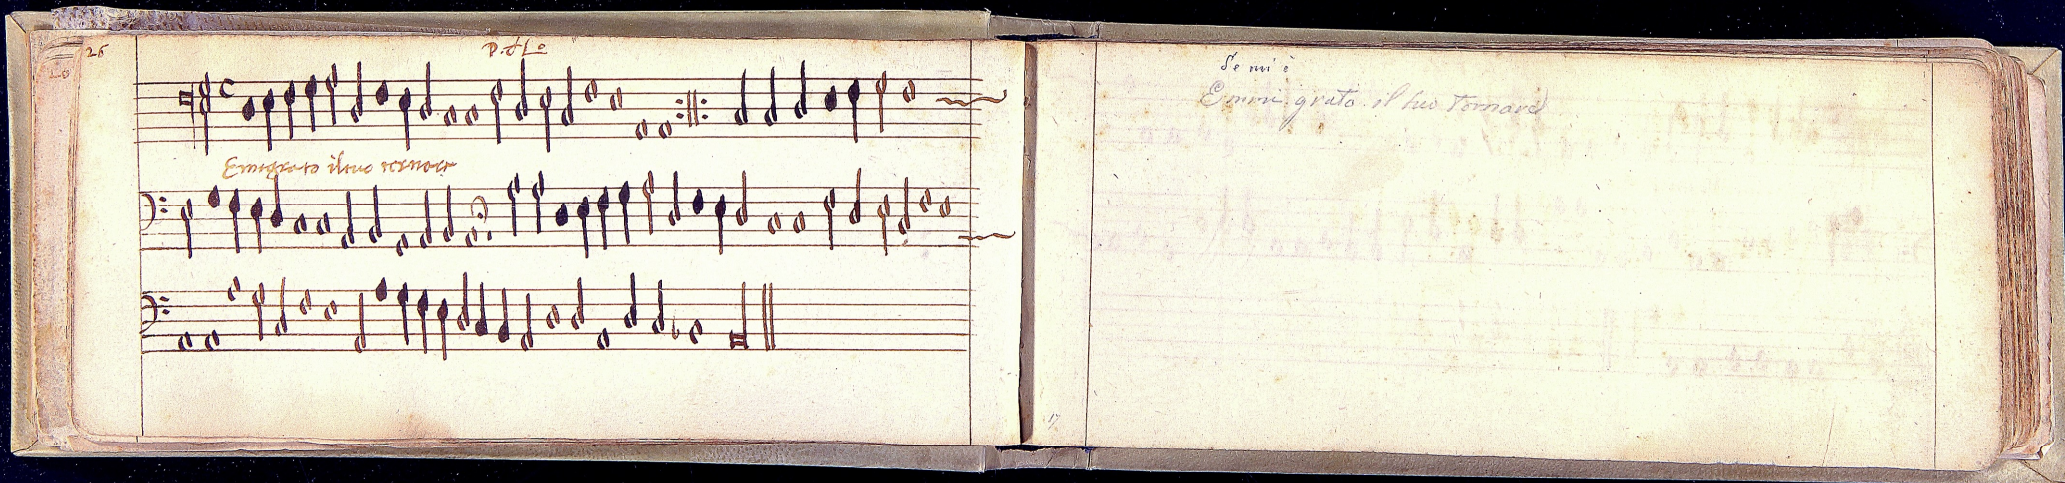 26
20
P. di Lo
E me grato il tuo tornare
Se mi è
E mmi grato il tuo tornare
17